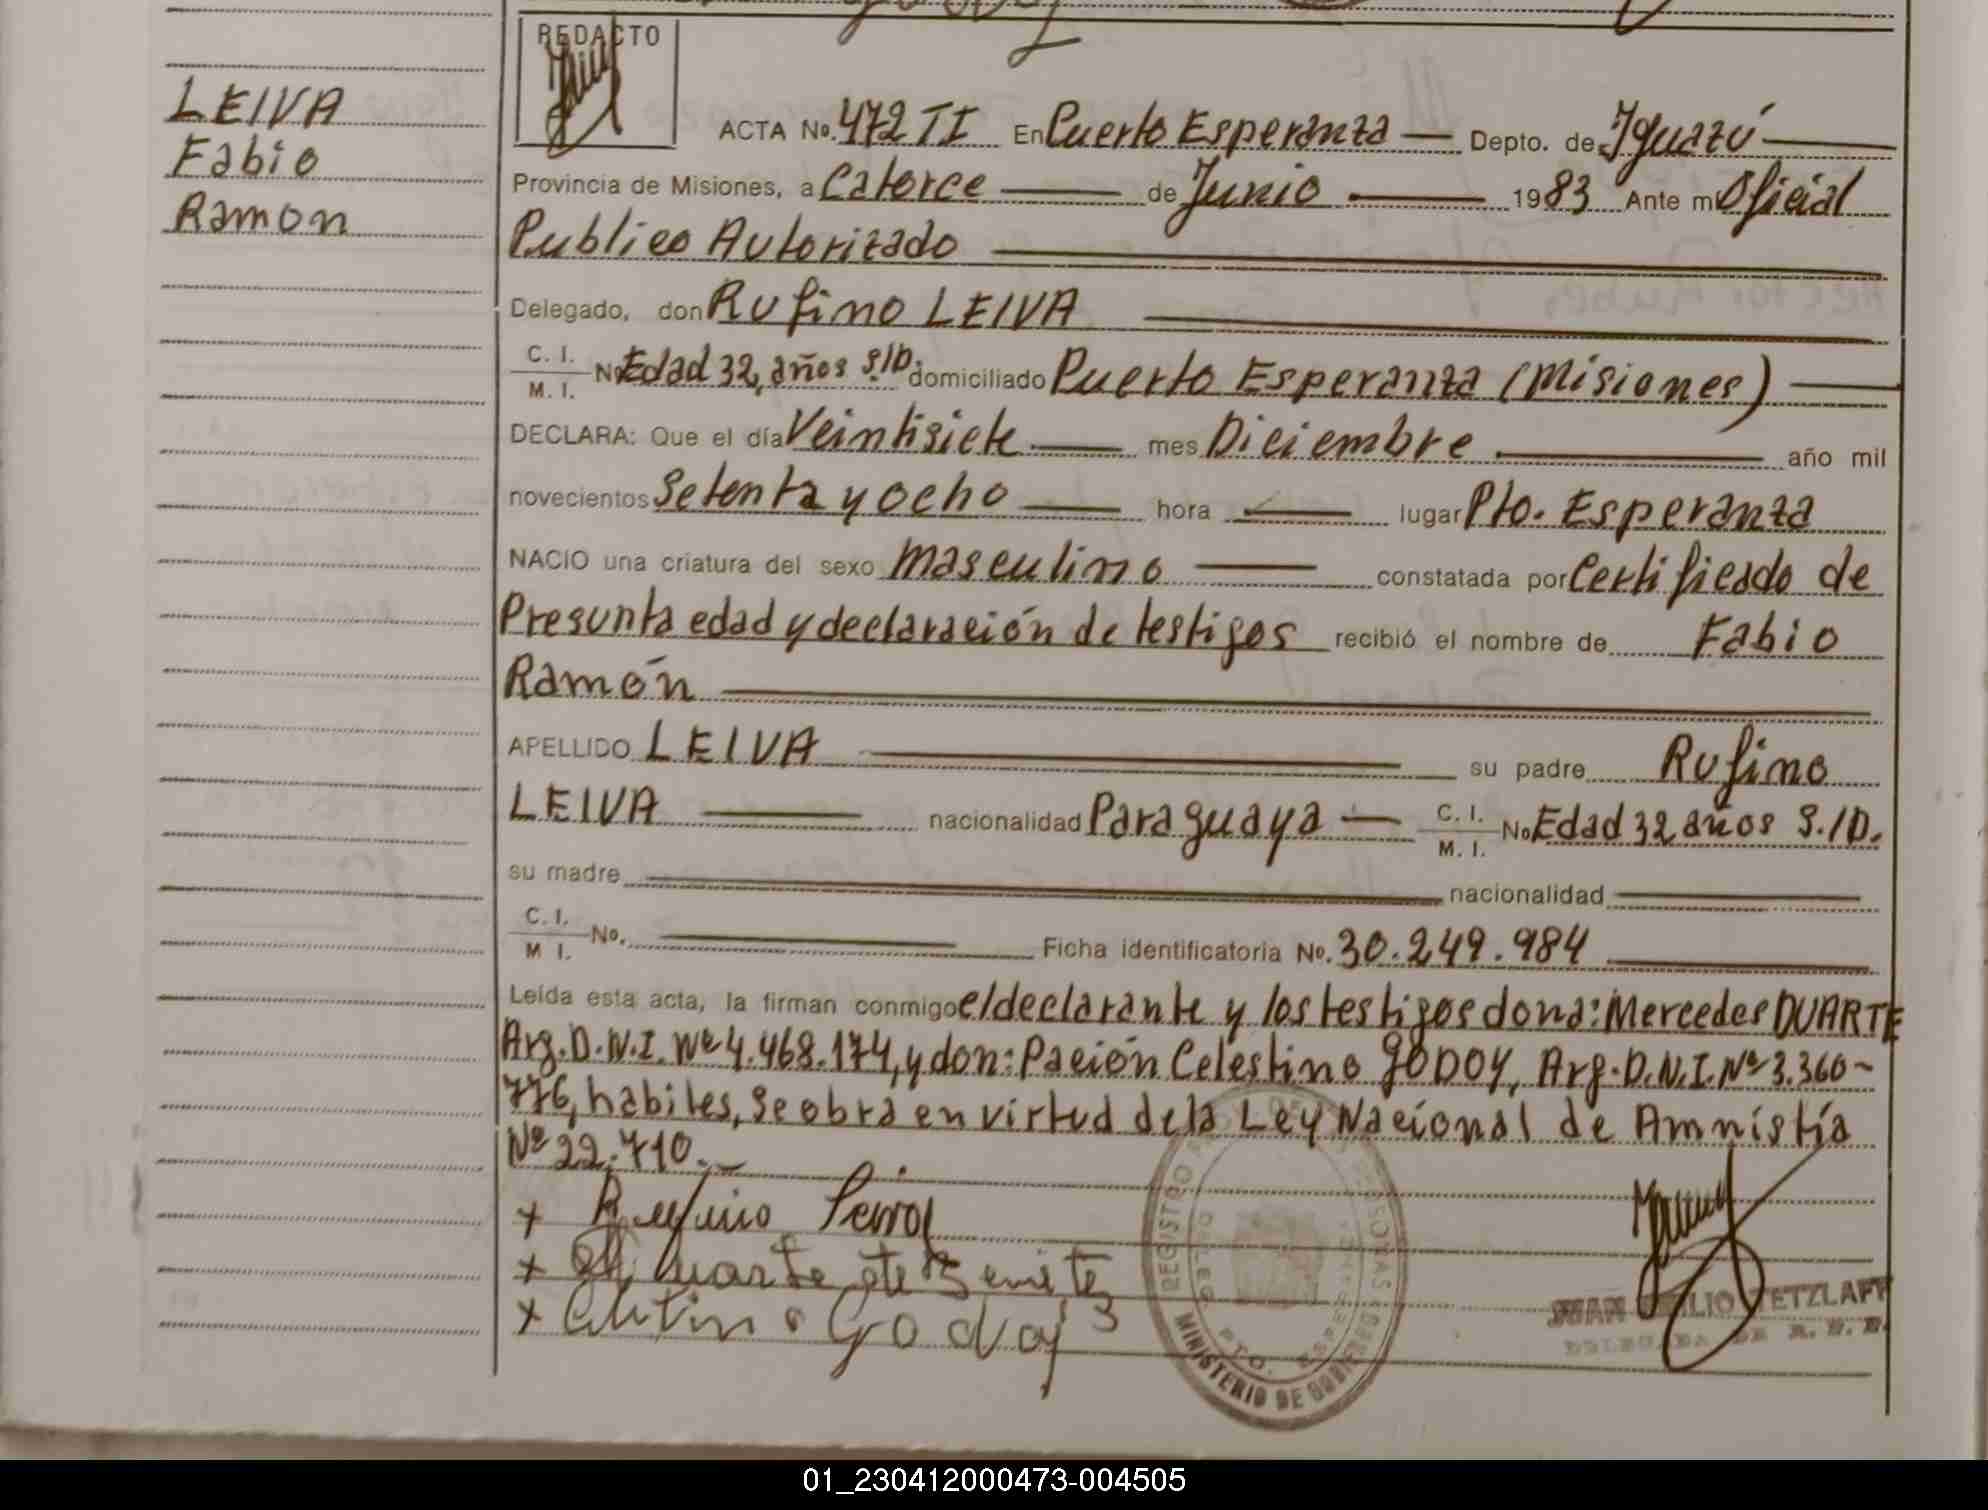 REDACTO
LEIVA
Fabio
Ramon
ACTA No. 472 TI En Puerto Esperanza — Depto. de Iguazú —
Provincia de Misiones, a Catorce — de Junio — 1983 Ante mi Oficial
Publico Autorizado —
Delegado, don Rufino LEIVA —
C. I. / M. I. No Edad 32, años S/D. domiciliado Puerto Esperanza (Misiones) —
DECLARA: Que el día Veintisiete — mes Diciembre — año mil
novecientos Setenta y ocho — hora — lugar Pto. Esperanza
NACIO una criatura del sexo masculino — constatada por Certificado de
Presunta edad y declaración de testigos recibió el nombre de Fabio
Ramón —
APELLIDO LEIVA — su padre Rufino
LEIVA — nacionalidad Paraguaya — C. I. / M. I. No Edad 32 años S./D.
su madre — nacionalidad —
C. I. / M I. No. — Ficha identificatoria No. 30.249.984 —
Leída esta acta, la firman conmigo el declarante y los testigos dona: Mercedes DUARTE
Arg. D.N.I. Nº 4.468.174, y don: Pación Celestino GODOY, Arg. D.N.I. Nº 3.360-
776, habiles, se obra en virtud de la Ley Nacional de Amnistía
Nº 22.710.-
+ Rufino Leiva
+ M, Duarte de
+ Godoy
REGISTRO DE LAS PERSONAS
PTO. ESPERANZA
MINISTERIO DE GOBIERNO
JUAN EMILIO RETZLAFF
01_230412000473-004505